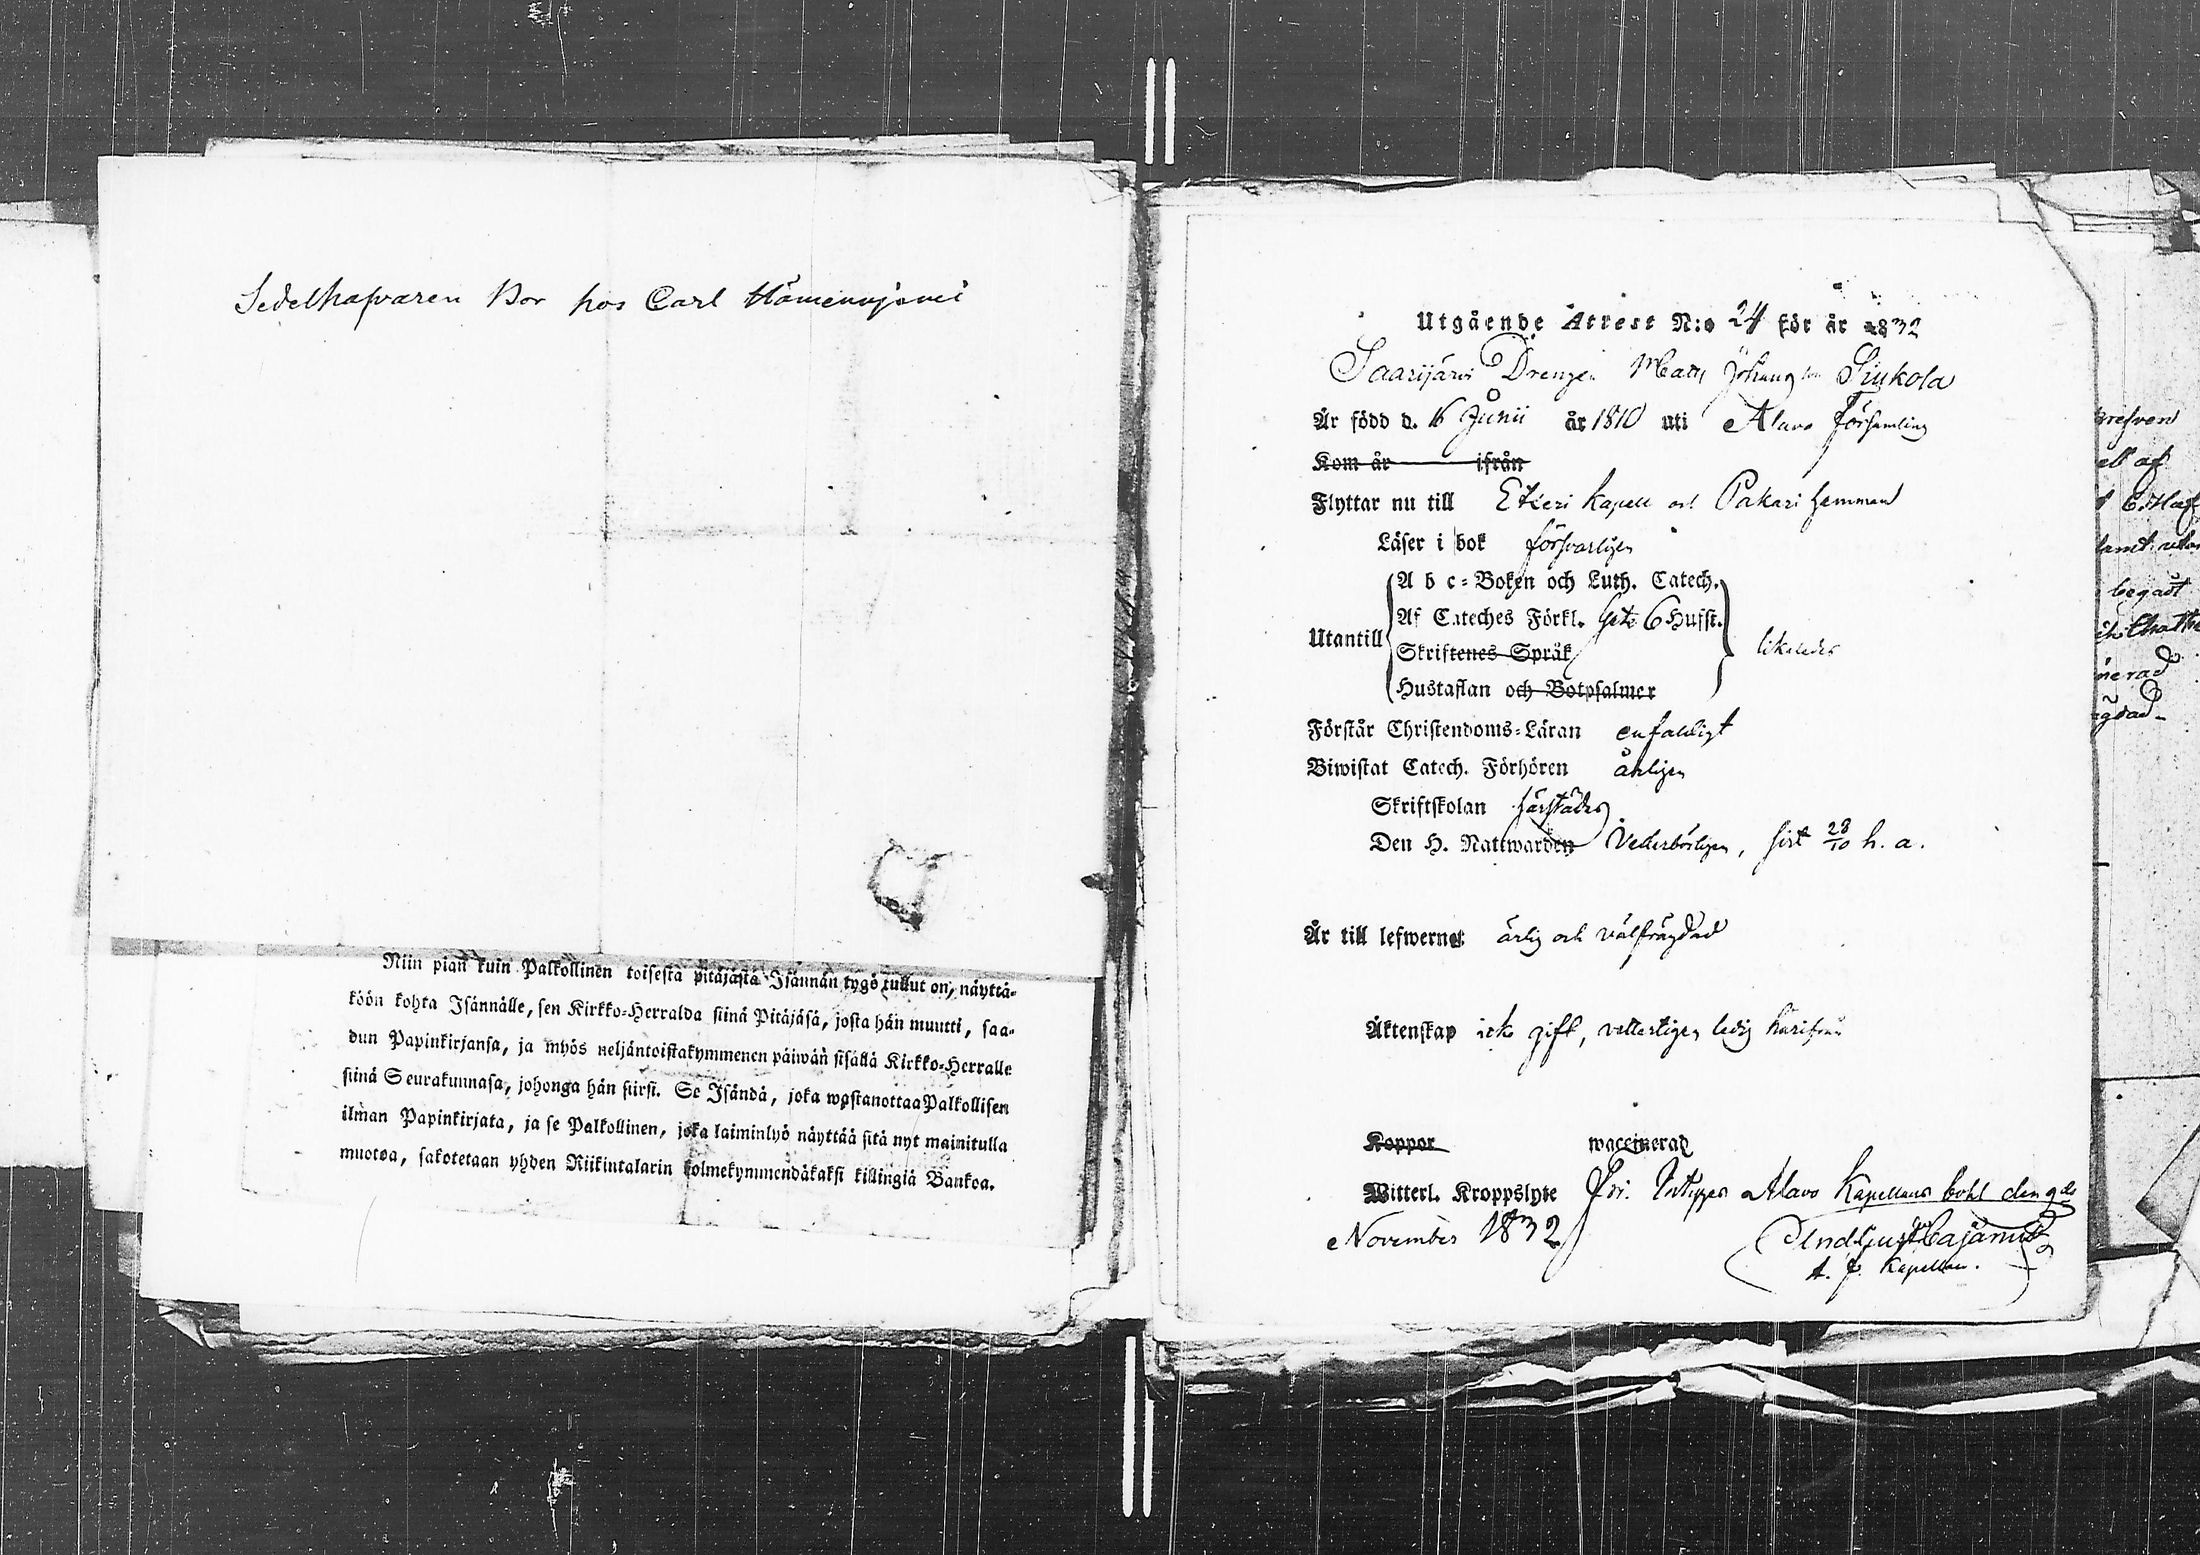 Sedelhafvaren Bor hos Carl
Niin pian kuin Palkollinen toisesta pitäjästä Isännän tygö tullut on, näyttä-
köön kohta Isännälle, sen Kirkko-Herralda siinä Pitäjäsä, josta hän muutti, saa-
dun Papinkirjansa, ja myös neljäntoistakymmenen päiwän sisällä Kirkko-Herralle
siinä Seurakunnasa, johonga hän siirsi. Se Isändä, joka wastanottaa Palkollisen
ilman Papinkirjata, ja se Palkollinen, joka laiminlyö näyttää sitä nyt mainitulla
muotoa, sakotetaan yhden Riikintalarin kolmekymmendäkaksi killingiä Bankoa.
Utgående Attest N:o 24 för år 1832
Saarijärvi Drengen Matts Johansson Sinkola
Är född d. 16 Junii år 1810 uti Alavo Församling
Kom år ifrån
Flyttar nu till Etseri Kapell och Pakari hemman
Läser i bok försvarligen
A b c-Boken och Luth. Catech.
Af Cateches Förkl. 6 Hufst.
Utantill
Skriftenes Språk
likaledes
Hustaflan och Botpsalmer
Förstår Christendoms-Läran enfaldigt
Biwistat Catech. Förhören årligen
Skriftskolan härstädes
Den H. Nattwarden Vederbörligen, sist 28/10 h. a.
Är till lefwernet ärlig och välfrägdad
Äktenskap icke gift, ledig härifrån
Koppor waccinerad
Witterl. Kroppslyte Fri. Alavo Kapellans bohl den 9de
November 1832
And Gust Cajanus
Kapellan.